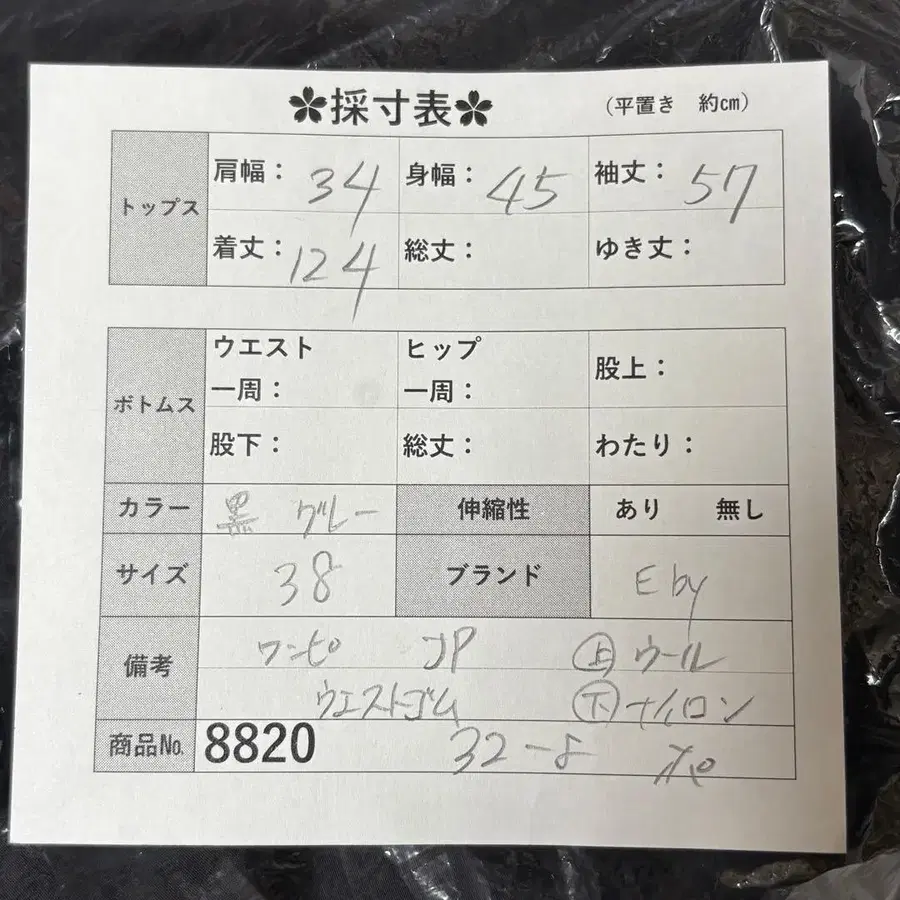 採寸表 (平置き 約cm)
トップス
肩幅: 34 身幅: 45 袖丈: 57
着丈: 124 総丈: ゆき丈:
ボトムス
ウエスト一周: ヒップ一周: 股上:
股下: 総丈: わたり:
カラー 黒 グレー 伸縮性 あり 無し
サイズ 38 ブランド E by
備考 ワンピ JP ㊤ウール
ウエストゴム ㊦ナイロン
商品No. 8820 32-